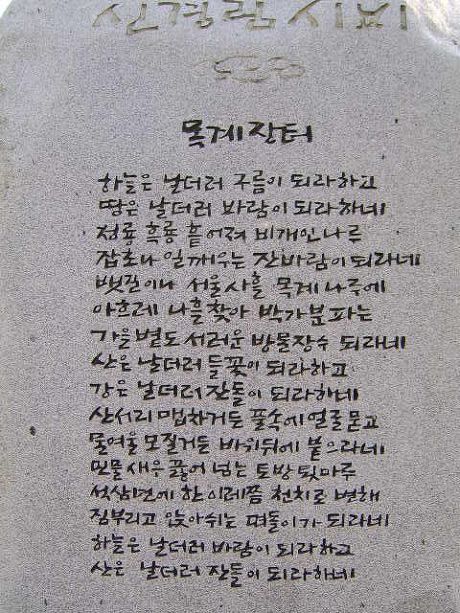 목계장터
하늘은 날더러 구름이 되라하고
땅은 날더러 바람이 되라하네
청룡 흑룡 흩어져 비개인 나루
잡초나 일깨우는 잔바람이 되라네
뱃길이나 서울 사흘 목계 나루에
아흐레 나흘 찾아 박가분 파는
가을볕도 서러운 방물장수 되라네
산은 날더러 들꽃이 되라하고
강은 날더러 잔돌이 되라하네
산서리 맵차거든 풀속에 얼굴 묻고
물여울 모질거든 바위뒤에 붙으라네
민물 새우 끓어 넘는 토방 툇마루
석삼년에 한 이레쯤 천치로 변해
짐부리고 앉아쉬는 떠돌이가 되라네
하늘은 날더러 바람이 되라하고
산은 날더러 잔돌이 되라하네